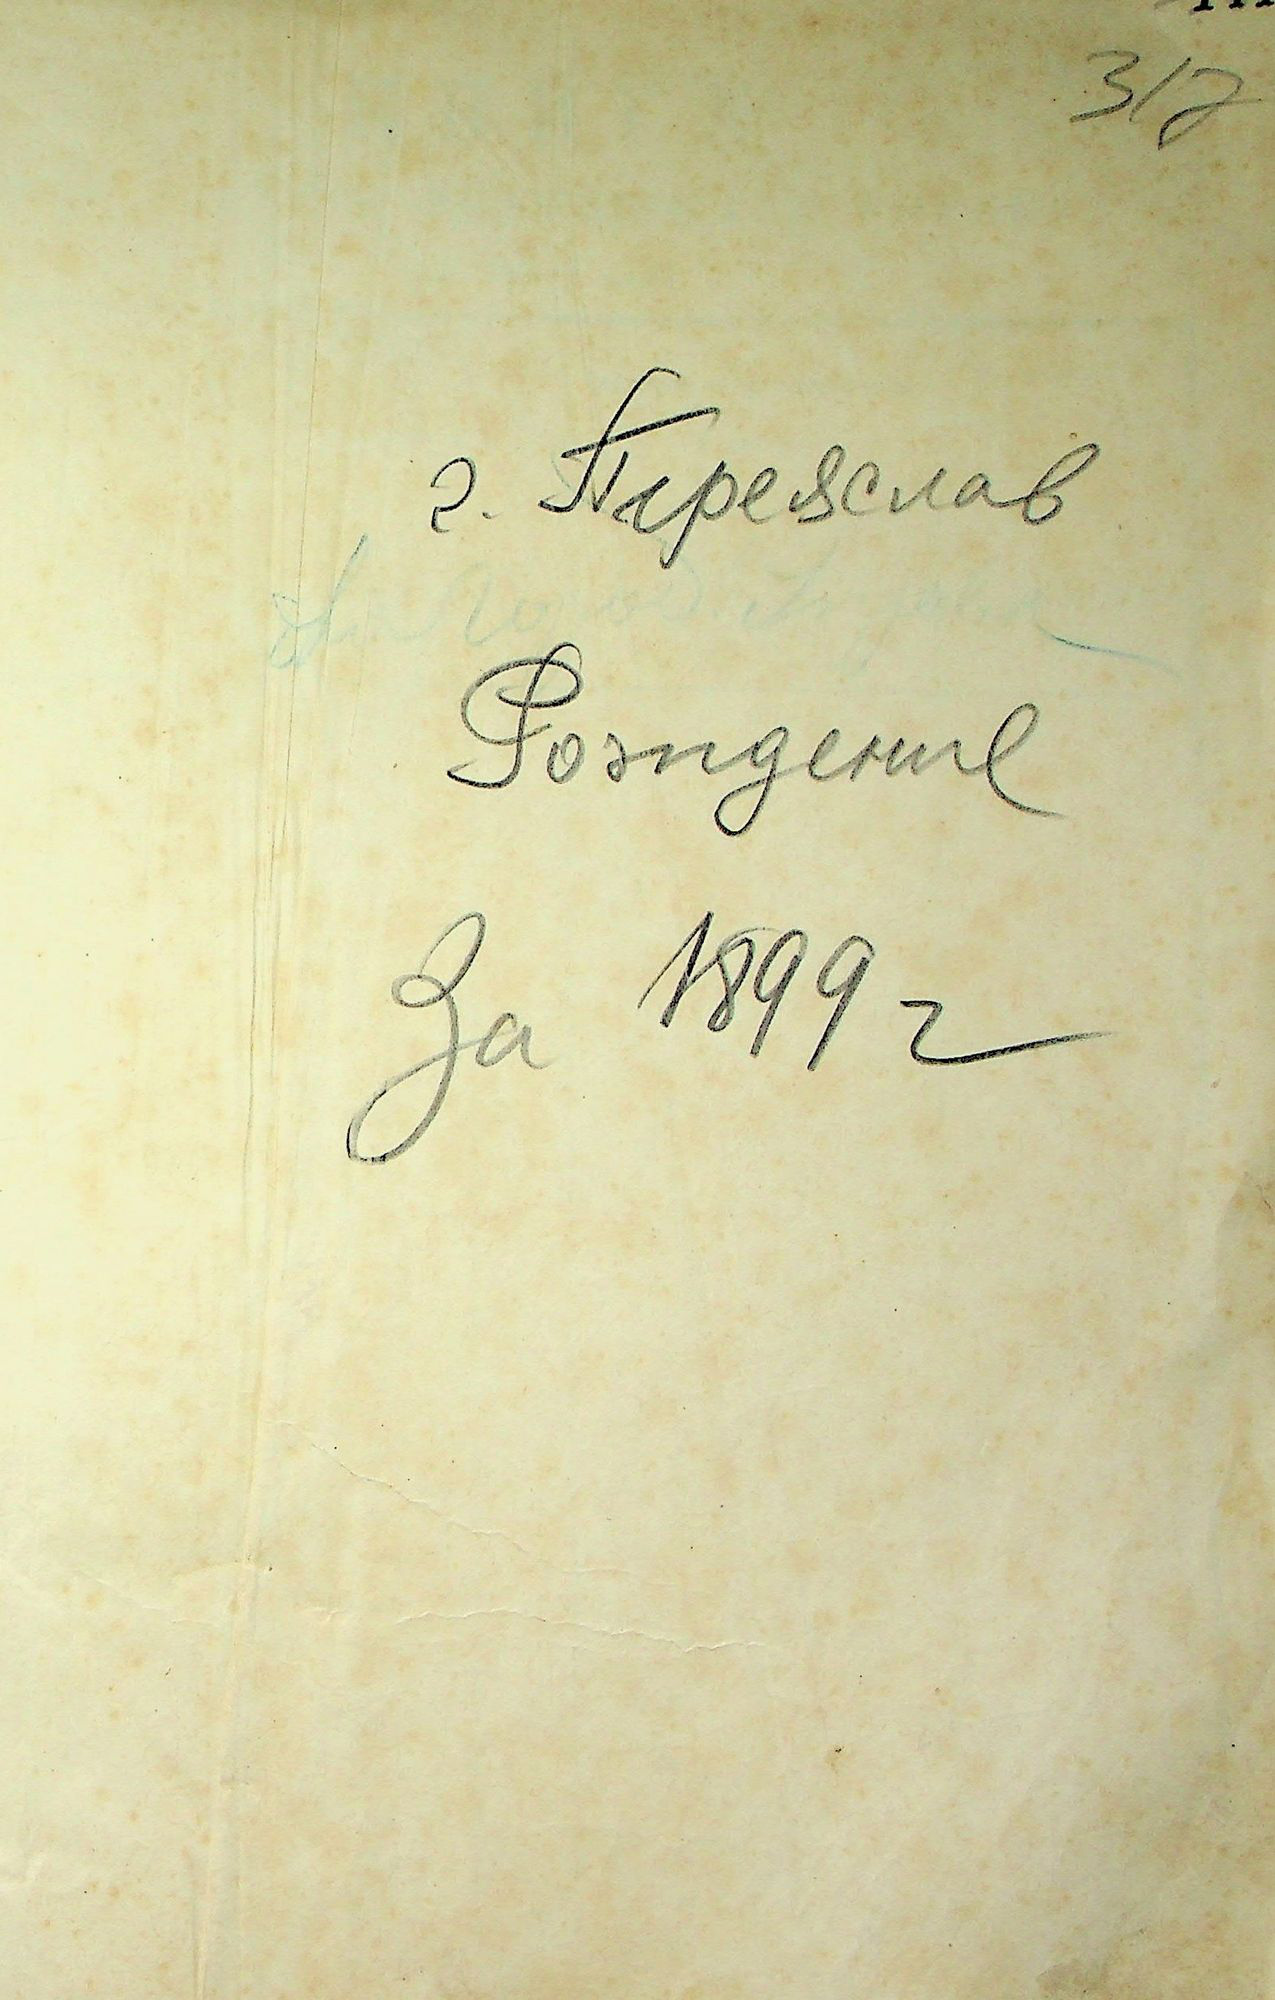 317
г. Переяслав
Рождение
За 1899 г